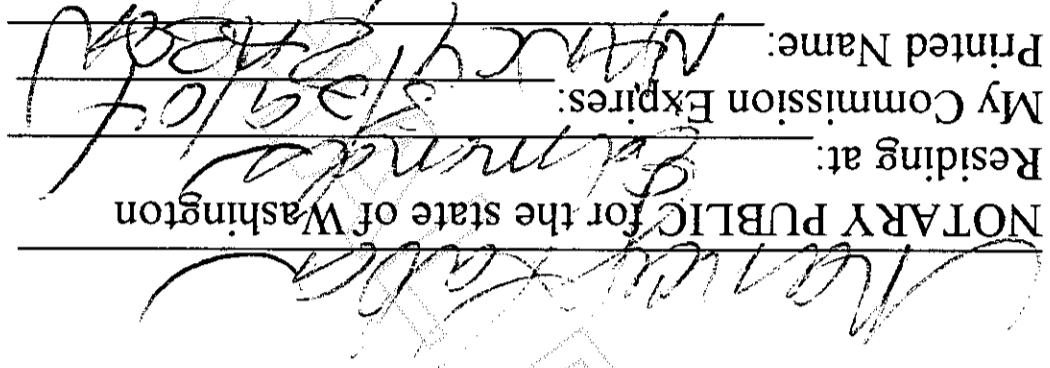 Nancy
NOTARY PUBLIC for the state of Washington
Residing at: Edmonds
My Commission Expires:
Printed Name: NANCY